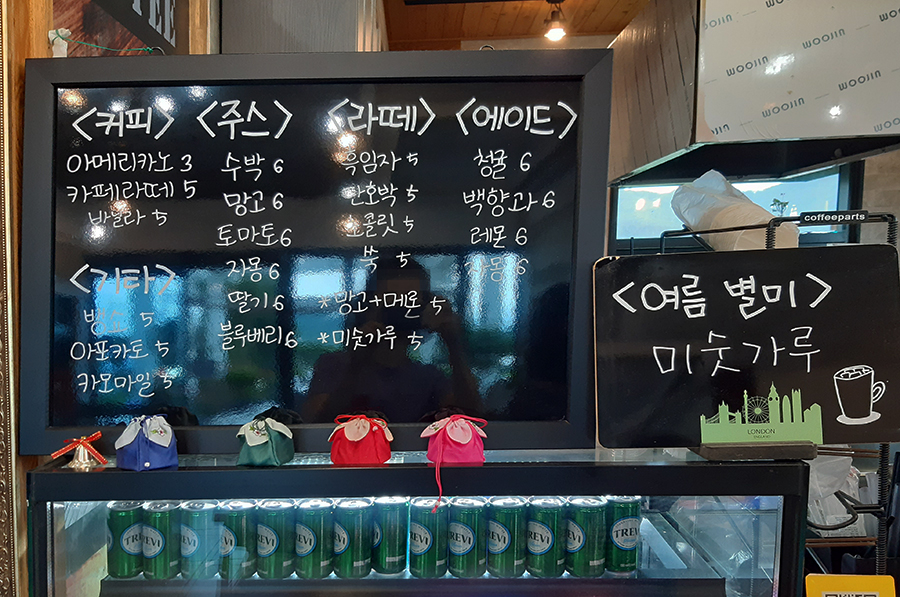 <커피>
아메리카노 3
카페라떼 5
바닐라 5
<기타>
뱅쇼 5
아포카토 5
카모마일 5
<주스>
수박 6
망고 6
토마토 6
자몽 6
딸기 6
블루베리 6
<라떼>
흑임자 5
단호박 5
쵸콜릿 5
쑥 5
*망고+메론 5
*미숫가루 5
<에이드>
청귤 6
백향과 6
레몬 6
자몽 6
WOOJIN
WOOJIN
WOOJIN
WOOJIN
WOOJIN
coffeeparts
<여름 별미>
미숫가루
LONDON
ENGLAND
TREVI
TREVI
TREVI
TREVI